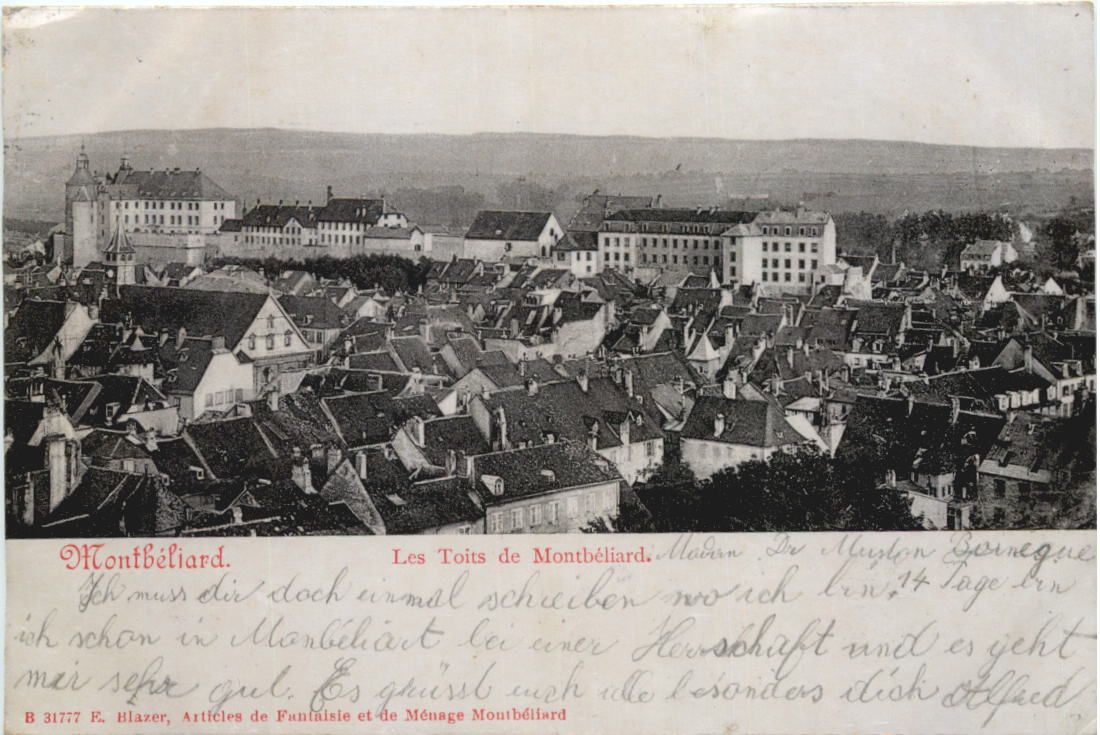 Montbéliard.
Les Toits de Montbéliard. Madam Dr Muston Bornèque
Ich muss dir doch einmal schreiben wo ich bin. 14 Tage bin
ich schon in Monbéliart bei einer Herrschaft und es geht
mir sehr gut. Es grüsst euch alle besonders dich Alfred
B 31777 E. Blazer, Articles de Fantaisie et de Ménage Montbéliard